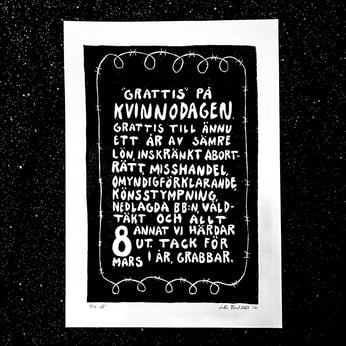 "GRATTIS" PÅ
KVINNODAGEN.
GRATTIS TILL ÄNNU
ETT ÅR AV SÄMRE
LÖN, INSKRÄNKT ABORT-
RÄTT, MISSHANDEL,
OMYNDIGFÖRKLARANDE,
KÖNSSTYMPNING,
NEDLAGDA BB:N, VÅLD-
TÄKT OCH ALLT
ANNAT VI HÄRDAR
UT. TACK FÖR
8 MARS I ÅR, GRABBAR.